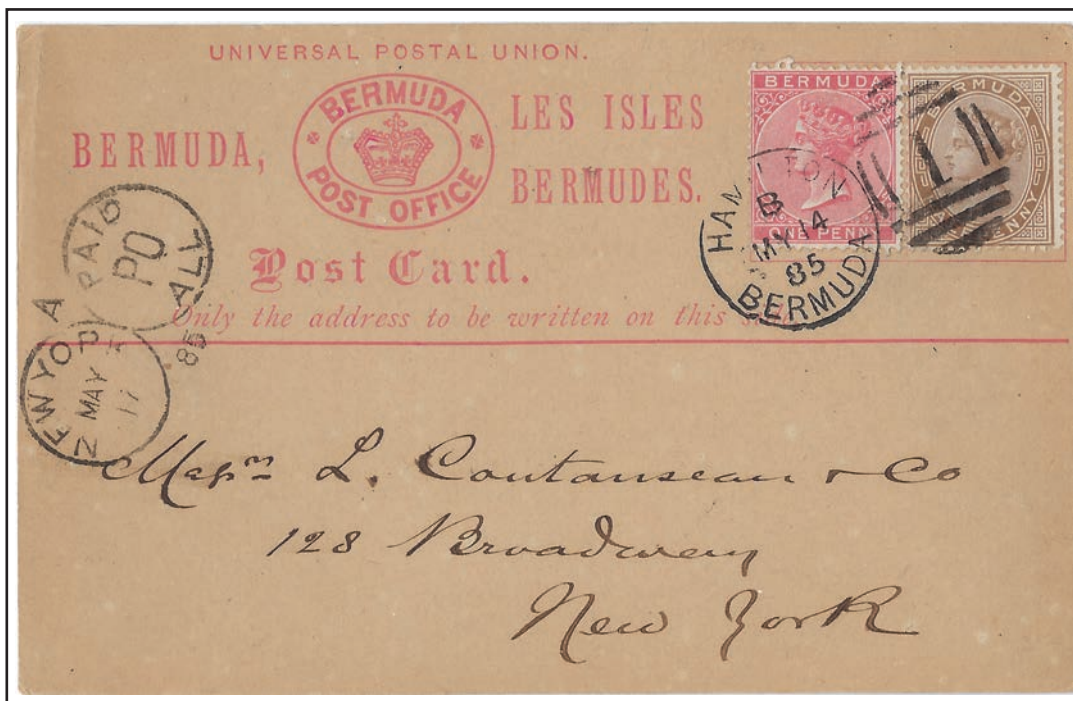 UNIVERSAL POSTAL UNION.
BERMUDA,
BERMUDA
POST OFFICE
LES ISLES
BERMUDES.
Post Card.
Only the address to be written on this
BERMUDA
ONE PENNY
BERMUDA
PENNY
HAMILTON
B
MY 14
85
BERMUDA
1
PAID
PO
ALL
NEW YO
A
MAY
17
85
L. Coutanseau & Co
128 Broadway
New York